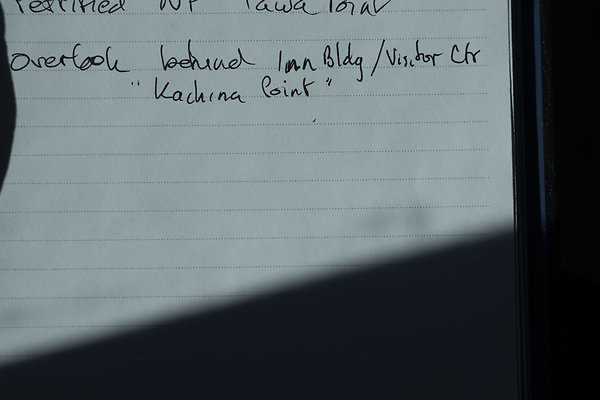 Petrified NP Tawa Point
overlook behind Inn Bldg/Visitor Ctr
"Kachina Point"